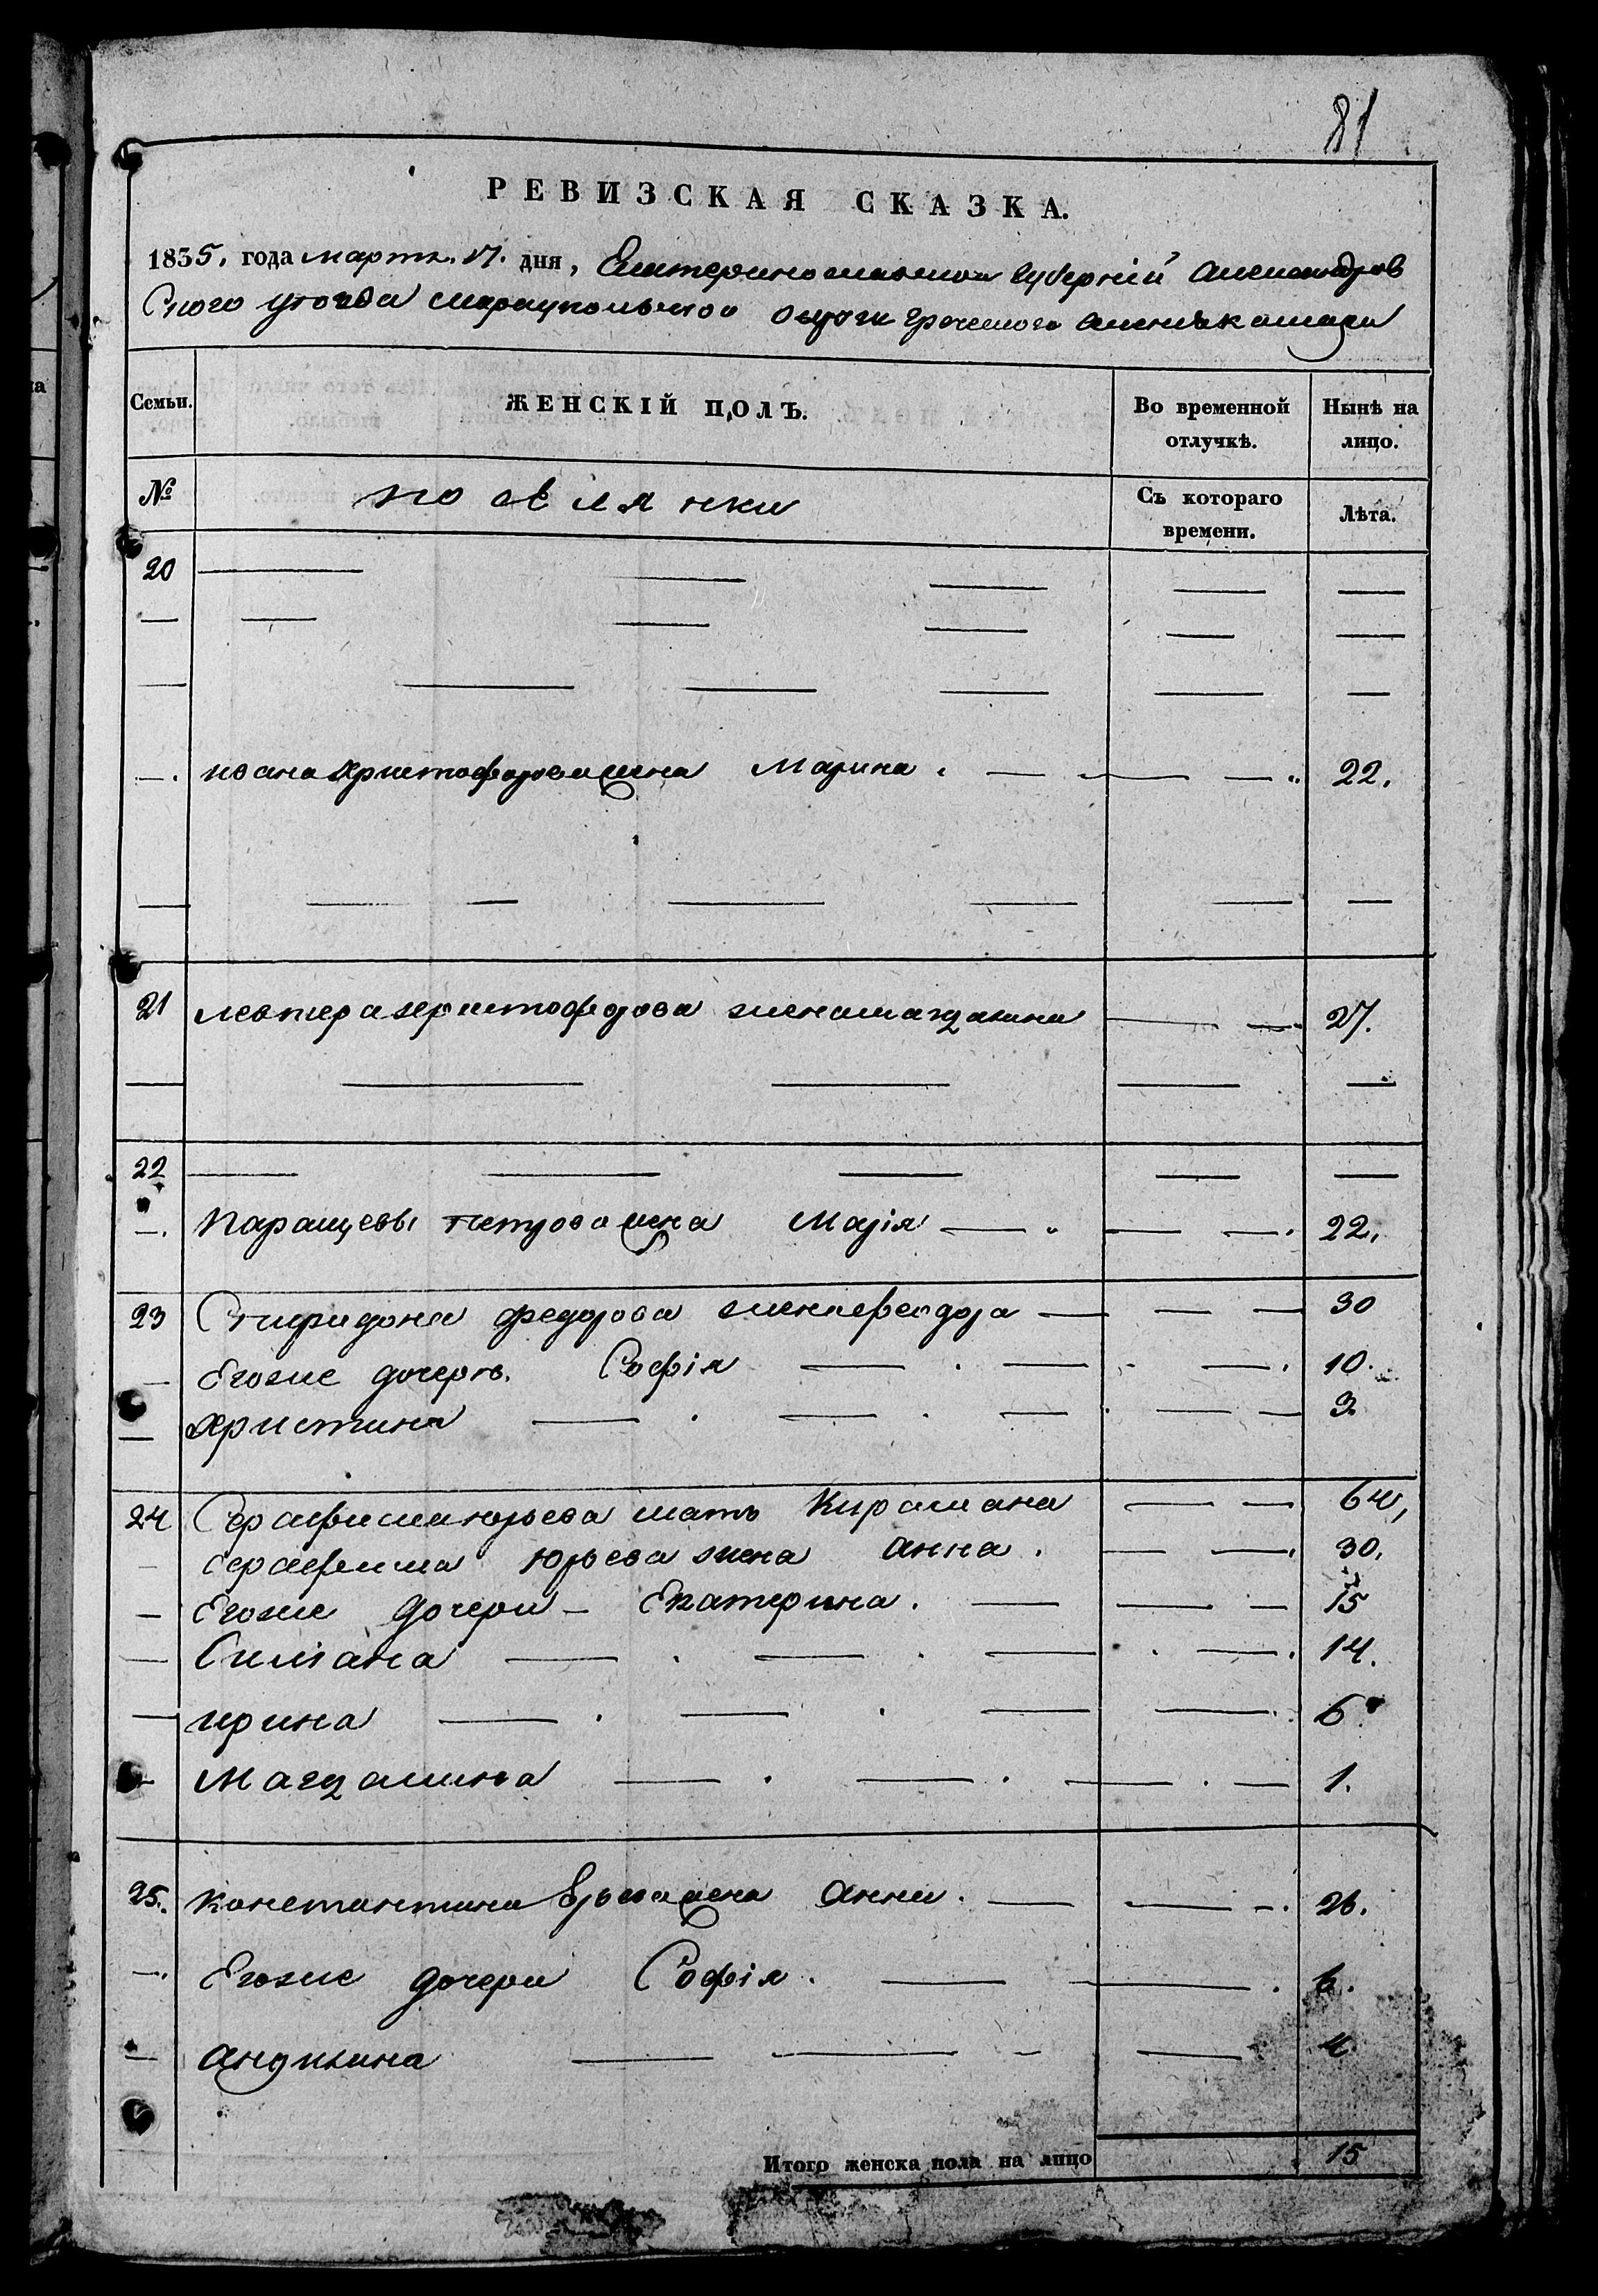 81
РЕВИЗСКАЯ СКАЗКА.
1835. года марта. 17. дня, Екатеринославской губерній Александров
ского уѣзда мариупольской округи греческого
Семьи. ЖЕНСКІЙ ПОЛЪ. Во временной отлучкѣ. Нынѣ на лицо.
№ поселянки Съ котораго времени. Лѣта.
20
ивана христофорова жена Марина. 22.
21 левтера христофорова жена магдалина 27.
22
Паращевы петрова жена Марія 22.
23 Спиридона федорова жена феодора 30
Егоже дочерь. Софія 10.
христина 3
24 Серафима юрьева мать Кирамана 64,
серафима юрьева жена анна. 30.
Егоже дочери Екатерина. 15
Симіана 14.
ирина 6
Магдалина 1.
25. константина Юрьева жена анна. 26.
Егоже дочери Софія. 6.
андикина 4
Итого женска пола на лицо 15